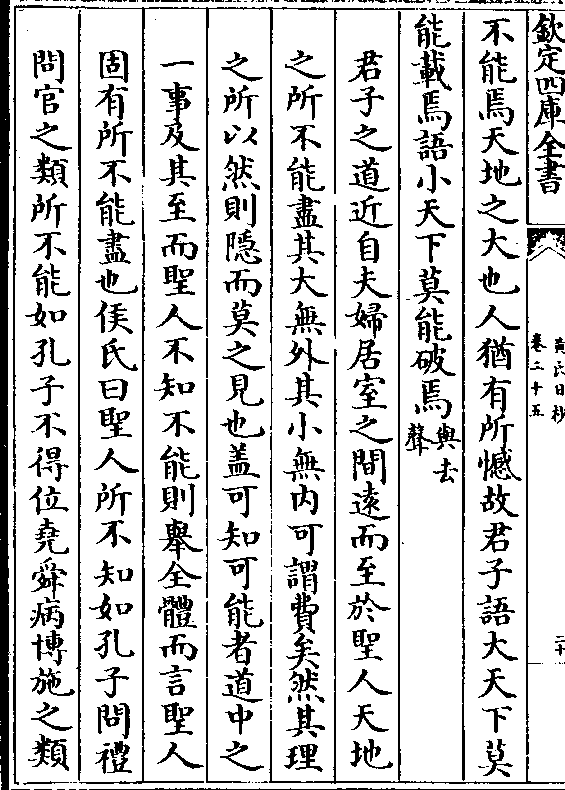 欽定四庫全書
黃氏日抄
卷二十五
二十
不能焉天地之大也人猶有所憾故君子語大天下莫
能載焉語小天下莫能破焉與去聲
君子之道近自夫婦居室之間逺而至於聖人天地
之所不能盡其大無外其小無内可謂費矣然其理
之所以然則隱而莫之見也盖可知可能者道中之
一事及其至而聖人不知不能則舉全體而言聖人
固有所不能盡也侯氏曰聖人所不知如孔子問禮
問官之類所不能如孔子不得位堯舜病博施之類